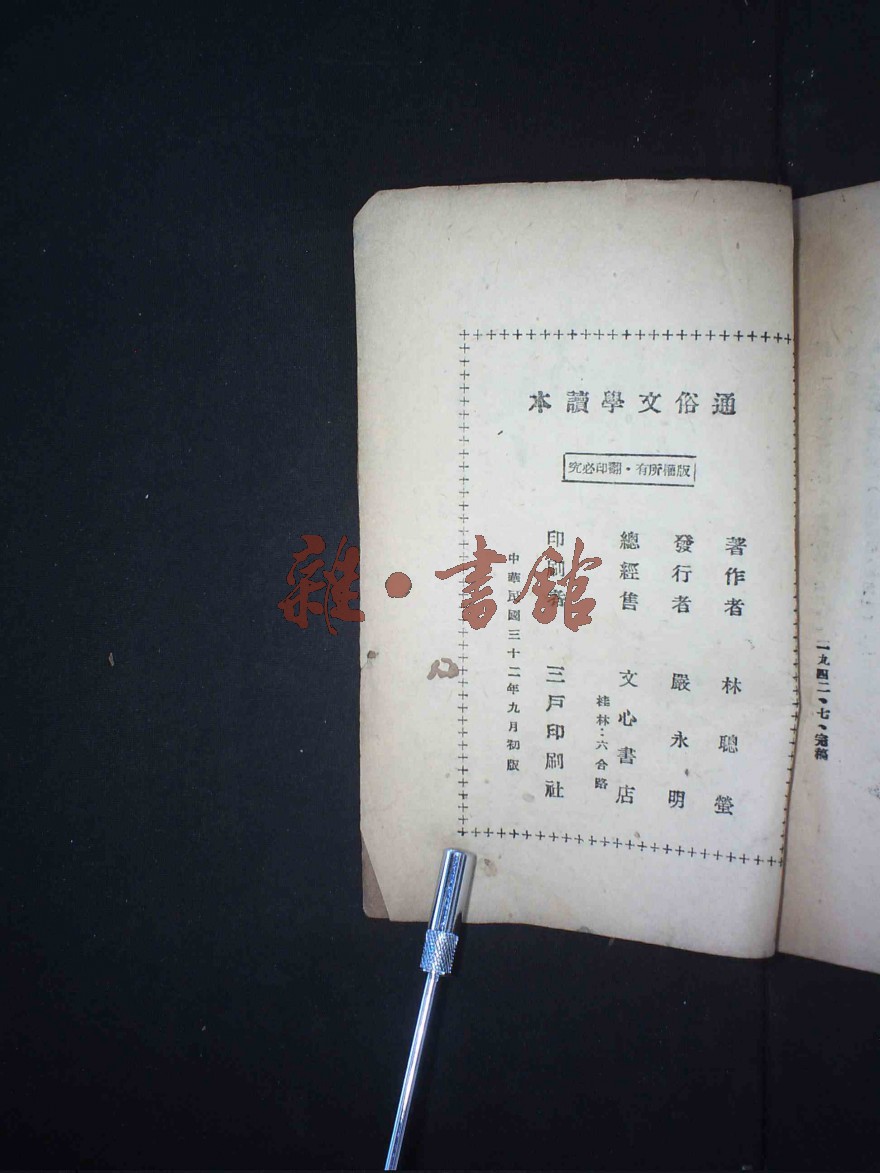 通俗文學讀本
版權所有・翻印必究
著作者 林聰螢
發行者 嚴永明
總經售 文心書店
桂林：六合路
印刷者 三戸印刷社
中華民國三十二年九月初版
一九四二、七、完稿
雜・書館